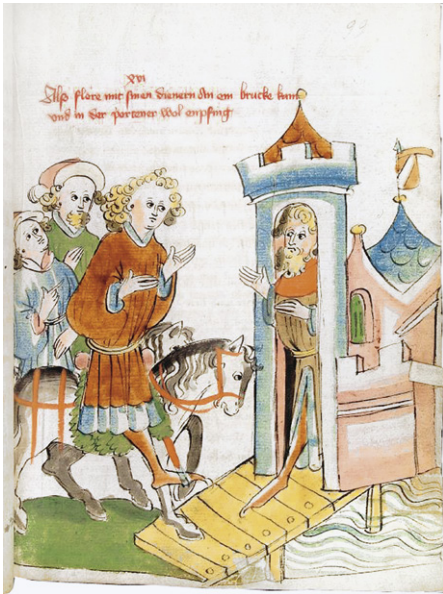 93
xvi
Also flore mit sinen dienern an ein brucke kam
und in der portener wol enpfing